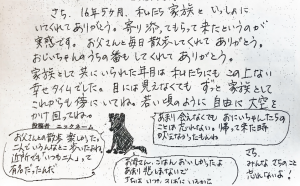 さち、16年5ヶ月、私たち家族といっしょに
いてくれてありがとう。寄り添ってもらって来たというのが
実感です。お父さんと毎日散歩してくれてありがとう。
おじいちゃんのうちの番もしてくれてありがとう。
家族として共にいられた年月は私たちにもこの上ない
幸せタイムでした。目には見えなくても ずっと家族として
これからも傍にいてね。若い頃のように自由に大空を
かけ回ってね。
お父さんとの散歩 楽しかった。
こんどいろんなとこ 歩いたよね。
近所でも"いつも二人"って
有名だったんだ
あまり会えなくても おにいちゃんたちの
ことは忘れない。帰って来た時
さち
みんなさちのこと
忘れないよ!
お母さん、ごはんおいしかったよ
あまり悲しまないで